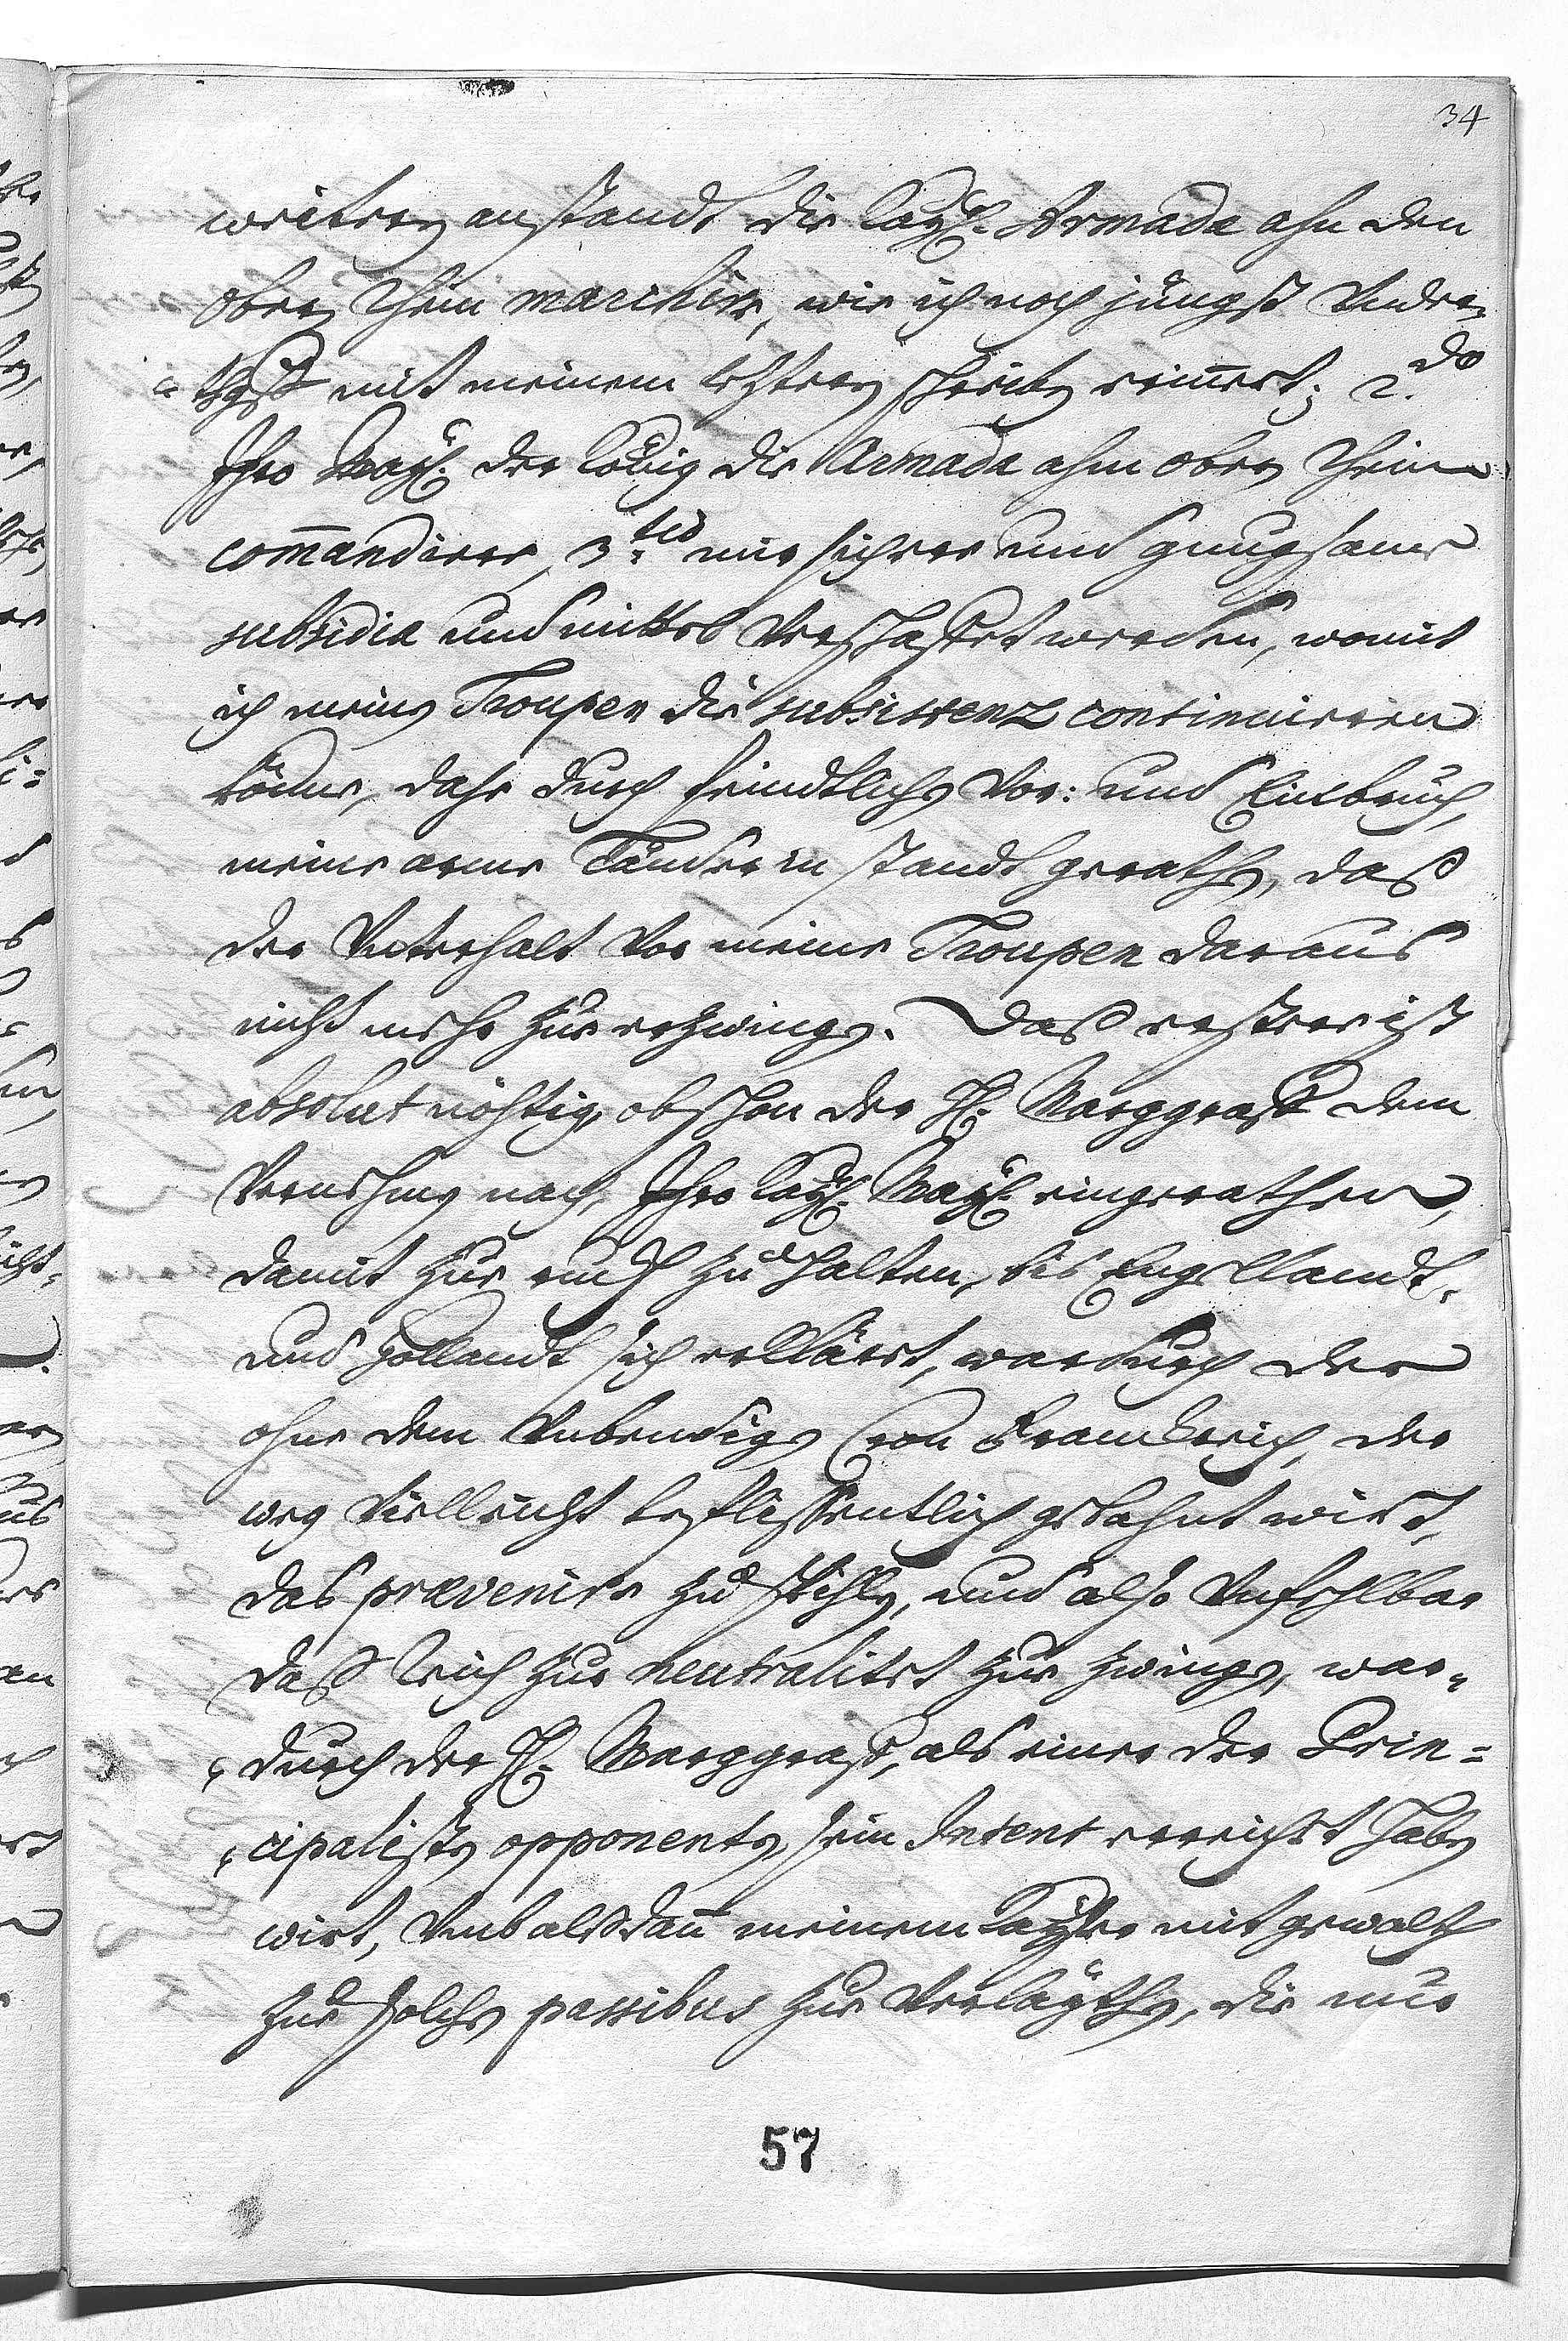 34
weitern anstandt die Kayß. Armada ahn den
obern Rhein marchire, wie ich noch jüngst Under-
-thgst mit meinem letztern schreiben erinnert; 2.do
Ihro Mayst. der König die Armada ahm obern Rhein
commandiren, 3.tio mir sichere und gnugsame
subsidia und mittel Verschaffet werden, womit
ich meinen Troupen die subsistenz continuiren
könne, dahe durch feindtlichen Vor: und Einbruch,
meine arme Länder in standt gerathen, daß
der Unterhalt Vor meine Troupen daraus
nicht mehr zur erzwingen. Daß erstere ist
absolut nöhtig, obschon der H. Marggraff dem
Vernehmen nach, Ihro Kayß. Mayst. eingerathen,
damit zur ruck zu halten, bis Engellandt-
und Hollandt sich erklärt, wardurch der
ohne dem Unbendigen Cron Franckreich, der
weg Vielleicht beflissentlich gebahnt wird,
das prævenire zu spihlen, und also Unfehlbar
daß Reich zur neutralitet zur zwingen, war-
-durch der H. Marggraff, als einer der Prin=
-cipalisten opponenten sein Intent erreichet haben
wirt, Umb alßdan meinem Kayser mit gewalt
zur solchen passibus zur Verläythen, die nur
57